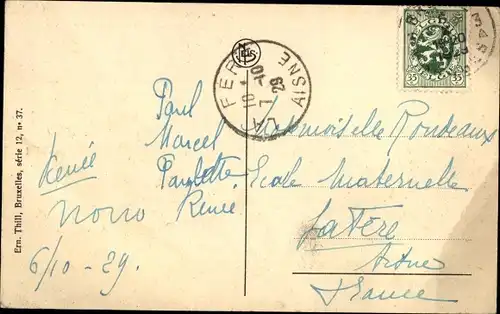 Ern. Thill, Bruxelles, série 12, n° 37.
Renée
Nono
6/10 - 29.
Paul
Marcel
Paulette
Renée
LA FERE
AISNE
7-10
29
35 35
Mademoiselle Rondeaux
Ecole Maternelle
La Fère
Aisne
France